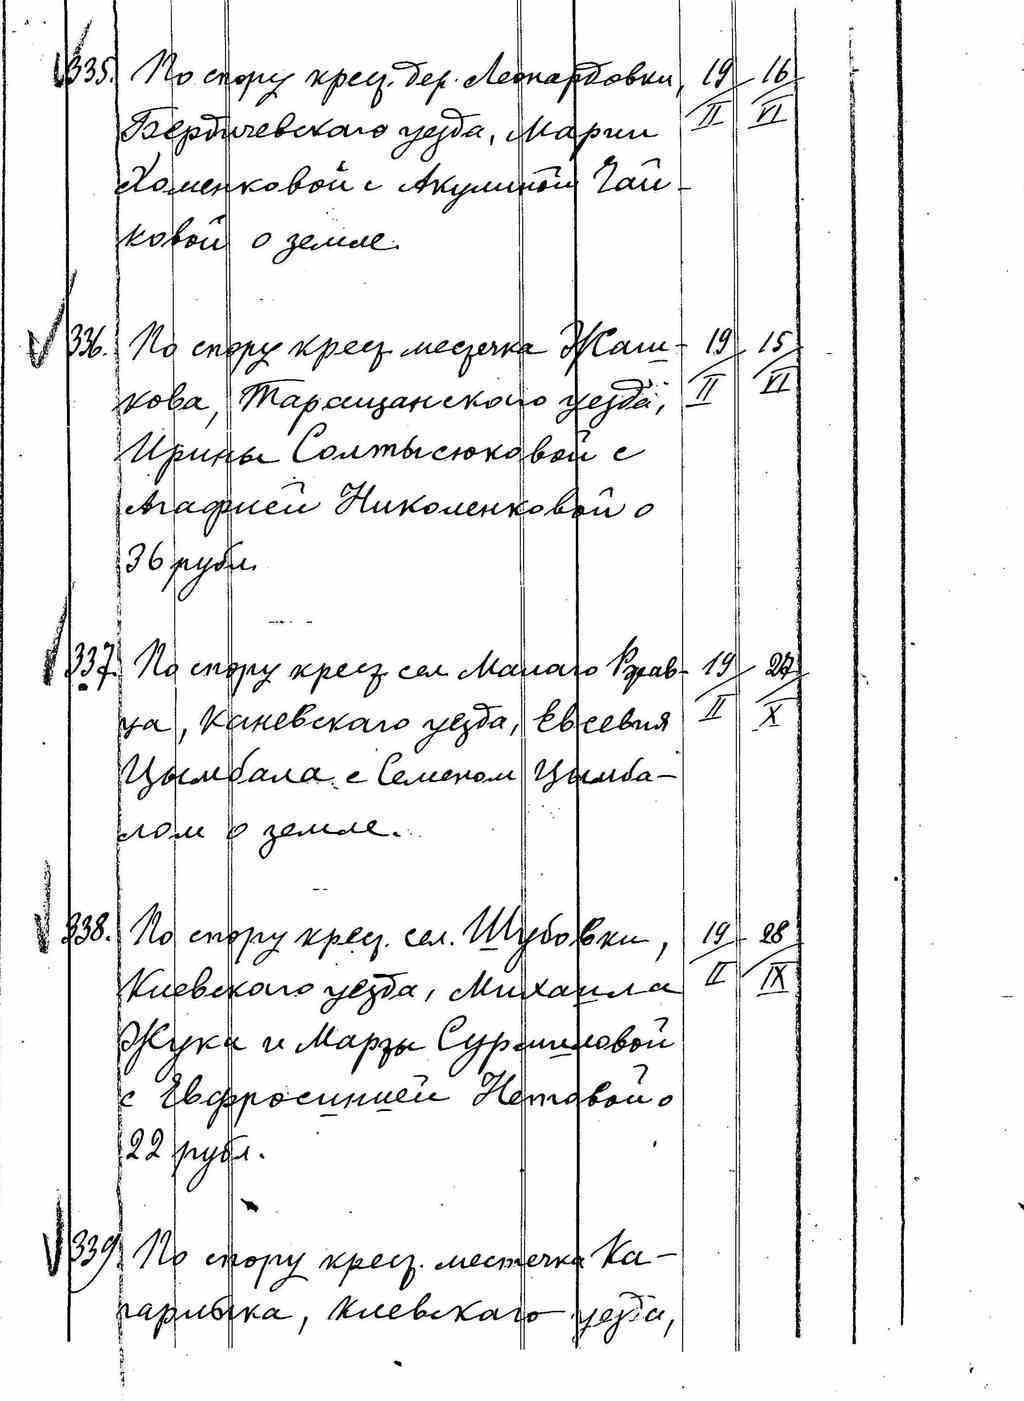 335. По спору крес. дер. Леонардовки, 19/II 16/VI
Бердичевскаго уезда, Марии
Хоменковой с Акулиной Чай-
ковой о земле.
336. По спору крес. местечка Жаш- 19/II 15/VI
кова, Таращанского уезда,
Ирины Солтысюковой с
Агафией Николенковой о
36 рубл.
337. По спору крес. сел. Малаго Ржав- 19/II 27/X
ца, Каневскаго уезда, Евсевия
Цымбала с Семеном Цымба-
лом о земле.
338. По спору крес. сел. Шубовки, 19/II 28/IX
Киевскаго уезда, Михаила
Жука и Марфы Сурмиловой
с Евфросинией Нетовой о
22 рубл.
339. По спору крес. местечка Ка-
гарлыка, Киевскаго уезда,